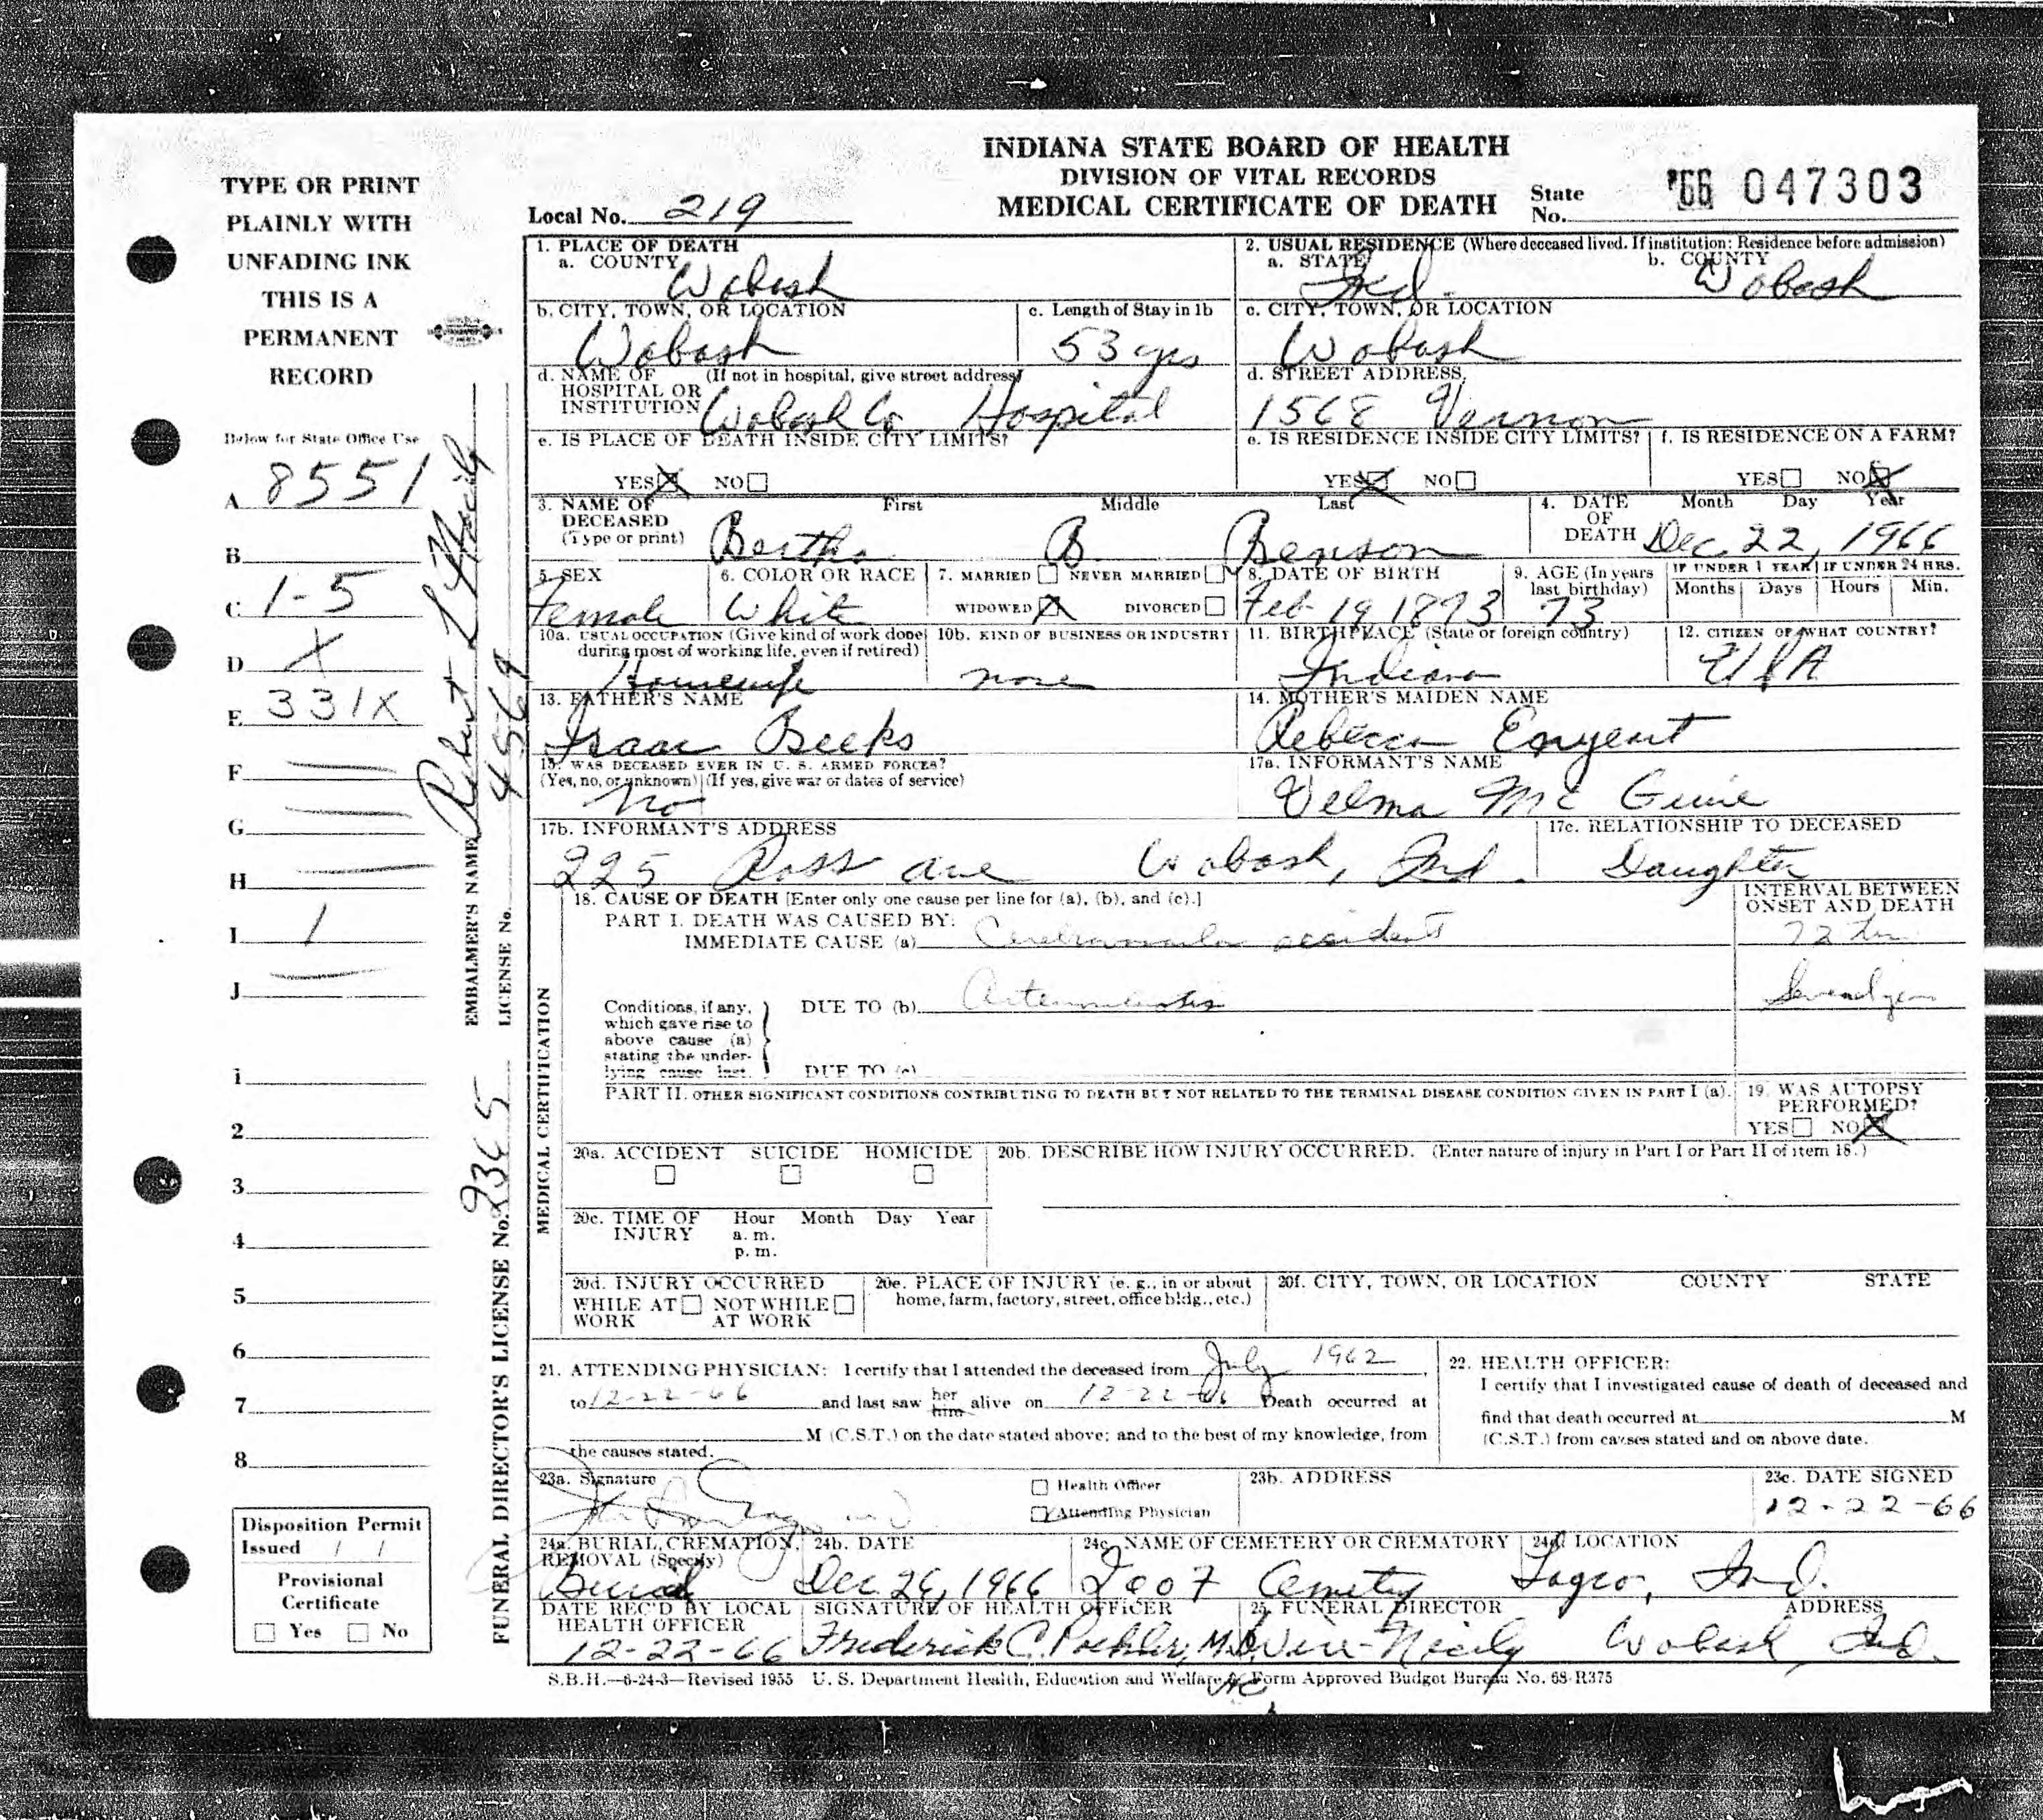 INDIANA STATE BOARD OF HEALTH
DIVISION OF VITAL RECORDS
MEDICAL CERTIFICATE OF DEATH
Local No. 219
State No. '66 047303
TYPE OR PRINT
PLAINLY WITH
UNFADING INK
THIS IS A
PERMANENT
RECORD
Below for State Office Use
A 8551
B
C 1-5
D X
E 331X
F
G
H
I 1
J
1
2
3
4
5
6
7
8
Disposition Permit
Issued / /
Provisional
Certificate
Yes No
EMBALMER'S NAME Robert L
LICENSE No. 4569
FUNERAL DIRECTOR'S LICENSE No.
1. PLACE OF DEATH
a. COUNTY Wabash
2. USUAL RESIDENCE (Where deceased lived. If institution: Residence before admission)
a. STATE Ind. b. COUNTY Wabash
b. CITY, TOWN, OR LOCATION Wabash
c. Length of Stay in 1b 53 yrs
c. CITY, TOWN, OR LOCATION Wabash
d. NAME OF HOSPITAL OR INSTITUTION (If not in hospital, give street address) Wabash Co. Hospital
d. STREET ADDRESS 1568 Vernon
e. IS PLACE OF DEATH INSIDE CITY LIMITS?
YES X NO
e. IS RESIDENCE INSIDE CITY LIMITS?
YES X NO
f. IS RESIDENCE ON A FARM?
YES NO X
3. NAME OF DECEASED (Type or print) First Middle Last
Bertha B. Benson
4. DATE OF DEATH Month Day Year
Dec. 22, 1966
5. SEX Female
6. COLOR OR RACE White
7. MARRIED NEVER MARRIED
WIDOWED X DIVORCED
8. DATE OF BIRTH Feb 19 1893
9. AGE (In years last birthday) 73
IF UNDER 1 YEAR IF UNDER 24 HRS.
Months Days Hours Min.
10a. USUAL OCCUPATION (Give kind of work done during most of working life, even if retired) Housewife
10b. KIND OF BUSINESS OR INDUSTRY none
11. BIRTHPLACE (State or foreign country) Indiana
12. CITIZEN OF WHAT COUNTRY? USA
13. FATHER'S NAME Isaac Beeks
14. MOTHER'S MAIDEN NAME Rebecca Enyeart
15. WAS DECEASED EVER IN U. S. ARMED FORCES?
(Yes, no, or unknown) (If yes, give war or dates of service)
No
17a. INFORMANT'S NAME Velma Mc Guire
17b. INFORMANT'S ADDRESS 225 Ross ave Wabash, Ind.
17c. RELATIONSHIP TO DECEASED Daughter
MEDICAL CERTIFICATION
18. CAUSE OF DEATH [Enter only one cause per line for (a), (b), and (c).]
INTERVAL BETWEEN ONSET AND DEATH
PART I. DEATH WAS CAUSED BY:
IMMEDIATE CAUSE (a) Cerebrovascular accident 72 hrs
Conditions, if any, which gave rise to above cause (a) stating the underlying cause last.
DUE TO (b) Arteriosclerosis Several years
DUE TO (c)
PART II. OTHER SIGNIFICANT CONDITIONS CONTRIBUTING TO DEATH BUT NOT RELATED TO THE TERMINAL DISEASE CONDITION GIVEN IN PART I (a).
19. WAS AUTOPSY PERFORMED?
YES NO X
20a. ACCIDENT SUICIDE HOMICIDE
20b. DESCRIBE HOW INJURY OCCURRED. (Enter nature of injury in Part I or Part II of item 18.)
20c. TIME OF INJURY Hour Month Day Year
a. m.
p. m.
20d. INJURY OCCURRED
WHILE AT WORK NOT WHILE AT WORK
20e. PLACE OF INJURY (e. g., in or about home, farm, factory, street, office bldg., etc.)
20f. CITY, TOWN, OR LOCATION COUNTY STATE
21. ATTENDING PHYSICIAN: I certify that I attended the deceased from July 1962
to 12-22-66 and last saw her him alive on 12-22-66 Death occurred at
M (C.S.T.) on the date stated above; and to the best of my knowledge, from
the causes stated.
22. HEALTH OFFICER:
I certify that I investigated cause of death of deceased and
find that death occurred at M
(C.S.T.) from causes stated and on above date.
23a. Signature
Health Officer
Attending Physician
23b. ADDRESS
23c. DATE SIGNED
12-22-66
24a. BURIAL, CREMATION, REMOVAL (Specify) Burial
24b. DATE Dec 26, 1966
24c. NAME OF CEMETERY OR CREMATORY Cemetery
24d. LOCATION Lagro, Ind.
DATE REC'D BY LOCAL HEALTH OFFICER 12-22-66
SIGNATURE OF HEALTH OFFICER Frederick C. Poehler, M.D.
25. FUNERAL DIRECTOR ADDRESS
Wabash, Ind.
S.B.H.—6-24-3—Revised 1955 U. S. Department Health, Education and Welfare Form Approved Budget Bureau No. 68-R375